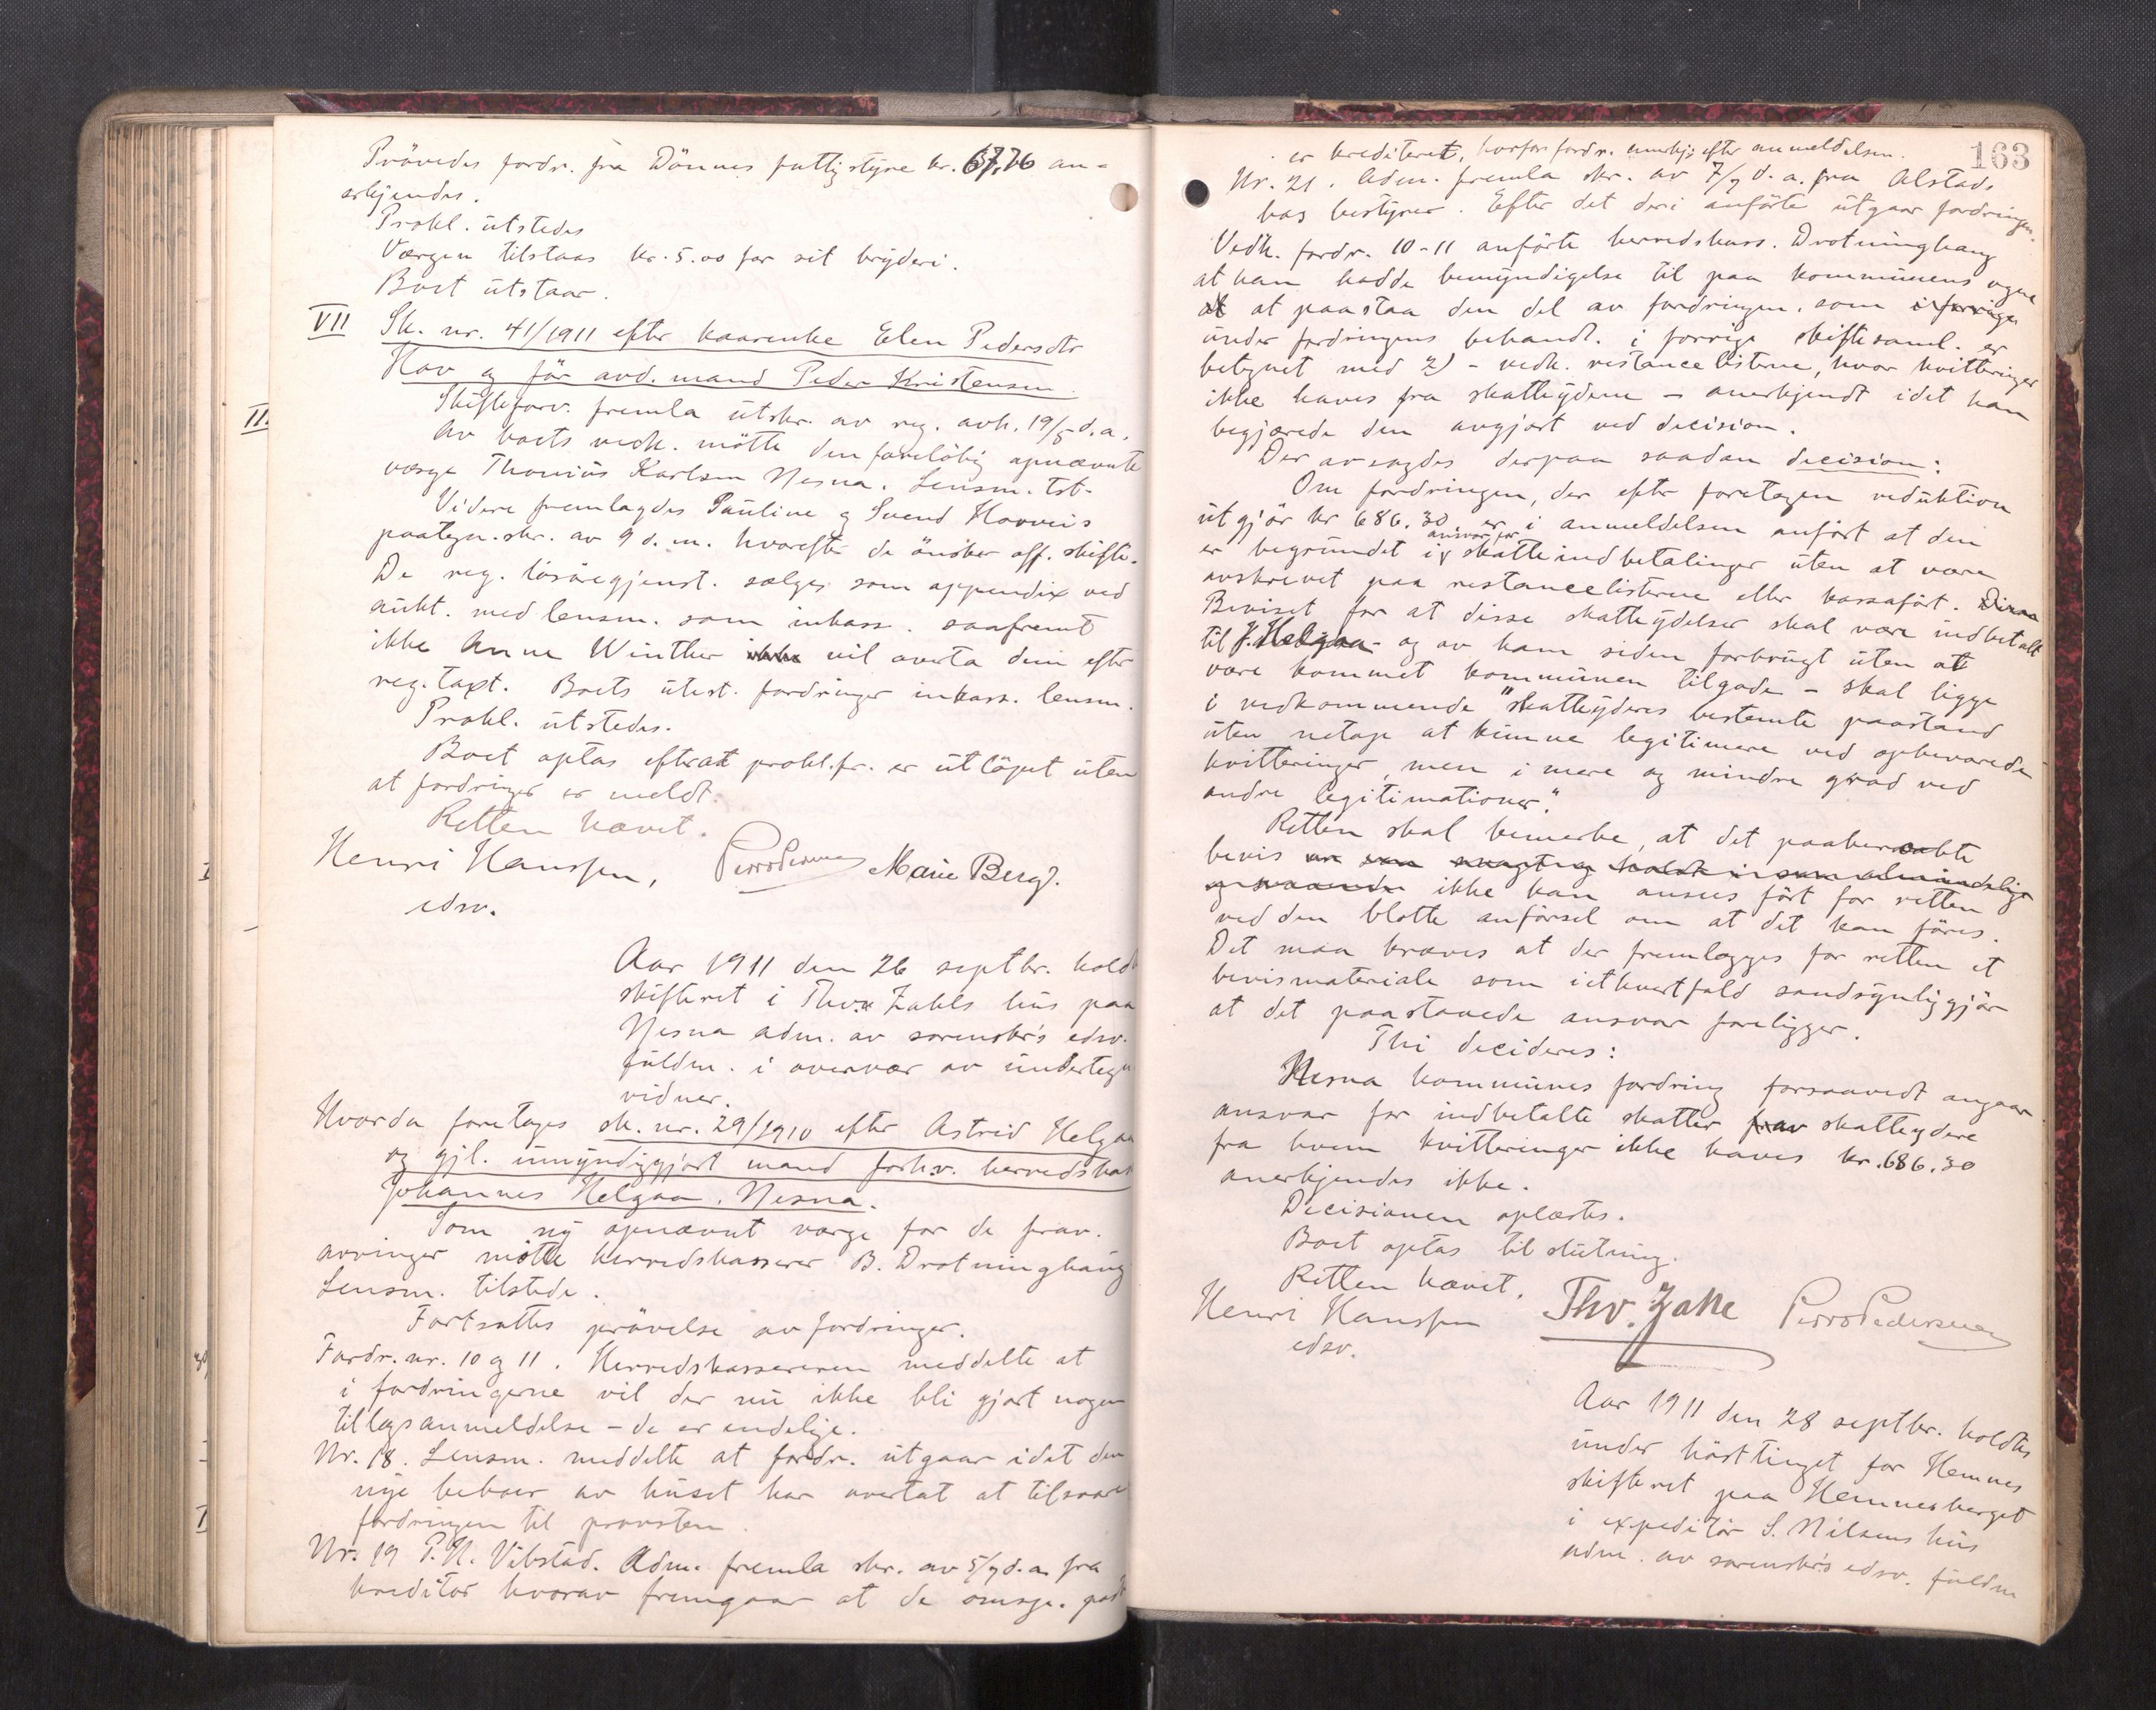 Prövedes fordr. fra Dönnes fattigstyre kr. 67,76 an-
erkjendes.
Prokl. utstedes
Værgen tilstaas kr. 5.00 for sit bryderi.
Boet utstaar.
VII Sk. nr. 41/1911 efter kaarenke Elen Pedersdtr
Hov og för avd. mand Peder Kristensen
Skifteforv. fremla utskr. av reg. avh. 19/5 d.a.
Av boets vedk. mötte den foreløbig opnævnte
værge Thonius Karlsen Nesna. Lensm. tst.
Videre fremlagdes Pauline og Svend Hovveis
paategn. skr. av 9 d.m. hvorefter de önsker off. skifte.
De reg. lösöregjenst. sælges som appendix ved
aukt. med lensm. som inkass. saafremt
ikke Anne Winther ikke vil overta dem efter
reg. taxt. Boets utest. fordringer inkass. lensm.
Prokl. utstedes.
Boet optas efterat prokl.fr. er utlöpet uten
at fordringer er meldt.
Retten hævet.
Henri Hanssen, Perro Pedersen Marie Berg.
edsv.
Aar 1911 den 26 septbr. holdt
skifteret i Thv. Zahls hus paa
Nesna adm. av sorenskr's edsv.
fuldm. i overvær av undertegn
vidner.
Hvorda foretages sk. nr. 29/1910 efter Astrid Helgaa
og gjl. umyndiggjort mand forhv. herredskas
Johannes Helgaa, Nesna.
Som ny opnævnt værge for de frav.
arvinger mötte herredskasserer B. Drotninghaug
Lensm. tilstede.
Fortsattes prövelse av fordringer.
Fordr. nr. 10 og 11. Herredskassereren meddelte at
i fordringerne vil der nu ikke bli gjort nogen
tillægsanmeldelse - de er endelige.
Nr. 18. Lensm. meddelte at fordr. utgaar idet den
nye beboer av huset har overtat at tilsvare
fordringen til provsten.
Nr. 19 P. N. Vibstad. Adm. fremla skr. av 5/7 d.a. fra
kreditor hvorav fremgaar at de omspr.
163
er krediteret, hvorfor fordr. anerkj's efter anmeldelsen.
Nr. 21. Adm. fremla skr. av 7/7 d.a. fra Alstad-
haug bestyrer. Efter det deri anförte utgaar fordringen.
Vedk. fordr. 10-11 anförte herredskass. Drotninghaug
at han hadde bemyndigelse til paa kommunens vegne
at at paastaa den del av fordringen, som i forrige
under fordringens behandl. i forrige skiftesaml. er
betegnet med 2) - vedk. restancelisterne, hvor kvitteringer
ikke haves fra skatteyderne - anerkjendt idet han
begjærede den avgjort ved decision.
Der avsagdes derpaa saadan decision:
Om fordringen, der efter foretagen reduktion
utgjör kr 686.30, er i anmeldelsen anfört at den
er begrundet i ansvar for skatteindbetalinger uten at være
avskrevet paa restancelisterne eller kassafört.
Beviset for at disse skatteydelser skal være indbetalt
til J. Helgaa - og av ham siden forbrugt uten at
være kommet kommunen tilgode - skal ligge
i vedkommende "skatteyderes bestemte paastand
uten netop at kunne legitimere ved opbevarede
kvitteringer, men i mere og mindre grad ved
andre legitimationer."
Retten skal bemerke, at det paaberaabte
bevis
ikke kan ansees fört for retten
ved den blotte anförsel om at det kan föres.
Det maa kræves at der fremlægges for retten et
bevismateriale som iethvertfald sandsynliggjör
at det paastaaede ansvar foreligger.
Thi decideres:
Nesna kommunes fordring forsaavidt angaar
ansvar for indbetalte skatter fra skatteydere
fra hvem kvitteringer ikke haves kr. 686.30
anerkjendes ikke.
Decisionen oplæstes.
Boet optas til slutning.
Retten hævet.
Henri Hanssen Thv. Zahl Perro Pedersen
edsv.
Aar 1911 den 28 septbr. holdtes
under hösttinget for Hemnes
skifteret paa Hemnesberget
i expeditör S. Nilsens hus
adm. av sorenskr's edsv. fuldm